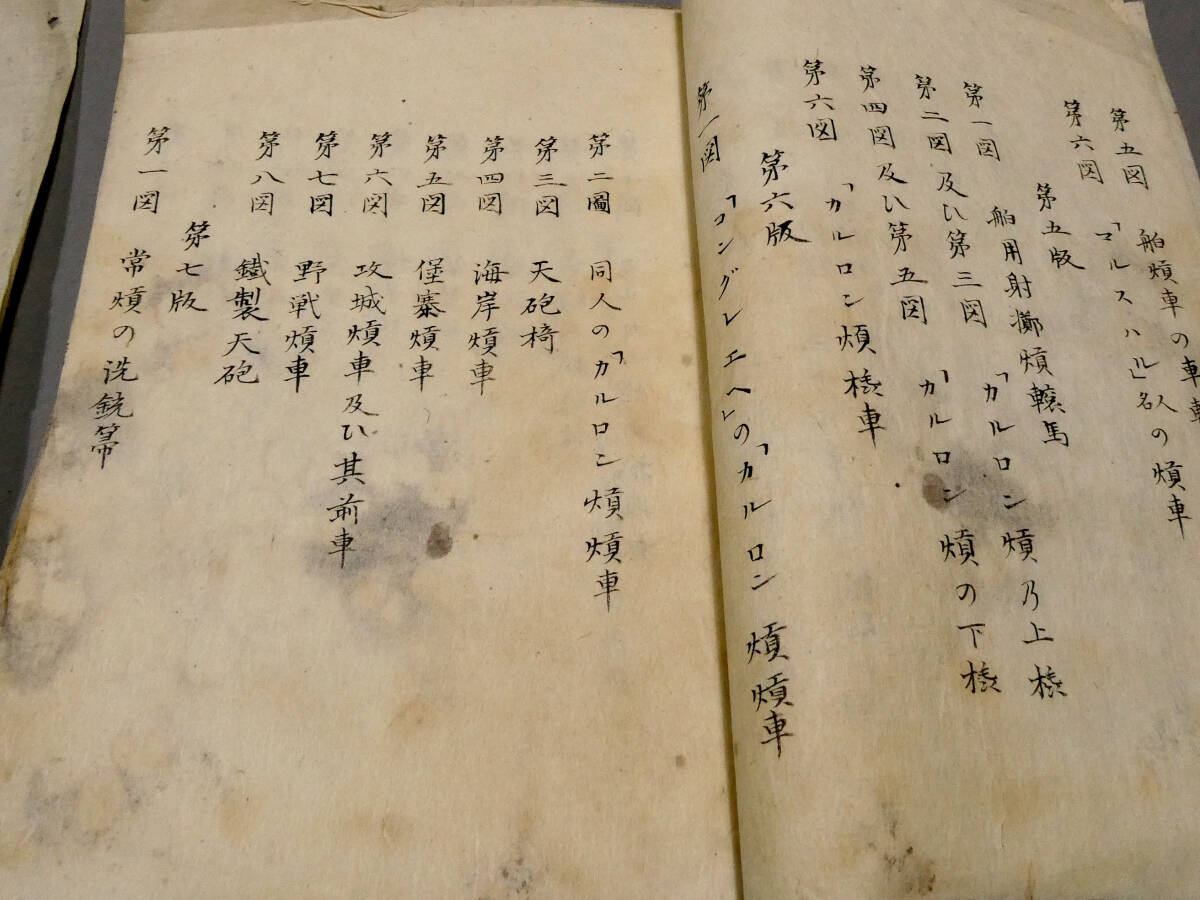 第五図 舶熕車の車
第六図 「マルスハル」名人の熕車
第五版
第一図 舶用射擲熕轅馬「カルロン熕乃上榱
第二図及ひ第三図 「カルロン熕の下榱
第四図及ひ第五図
第六図 「カルロン熕榱車
第六版
第一図 「コングレエヘ」の「カルロン熕熕車
第二圖 同人の「カルロン熕熕車
第三図 天砲椅
第四図 海岸熕車
第五図 堡寨熕車
第六図 攻城熕車及ひ其前車
第七図 野戦熕車
第八図 鐵製天砲
第七版
第一図 常熕の洗銃箒